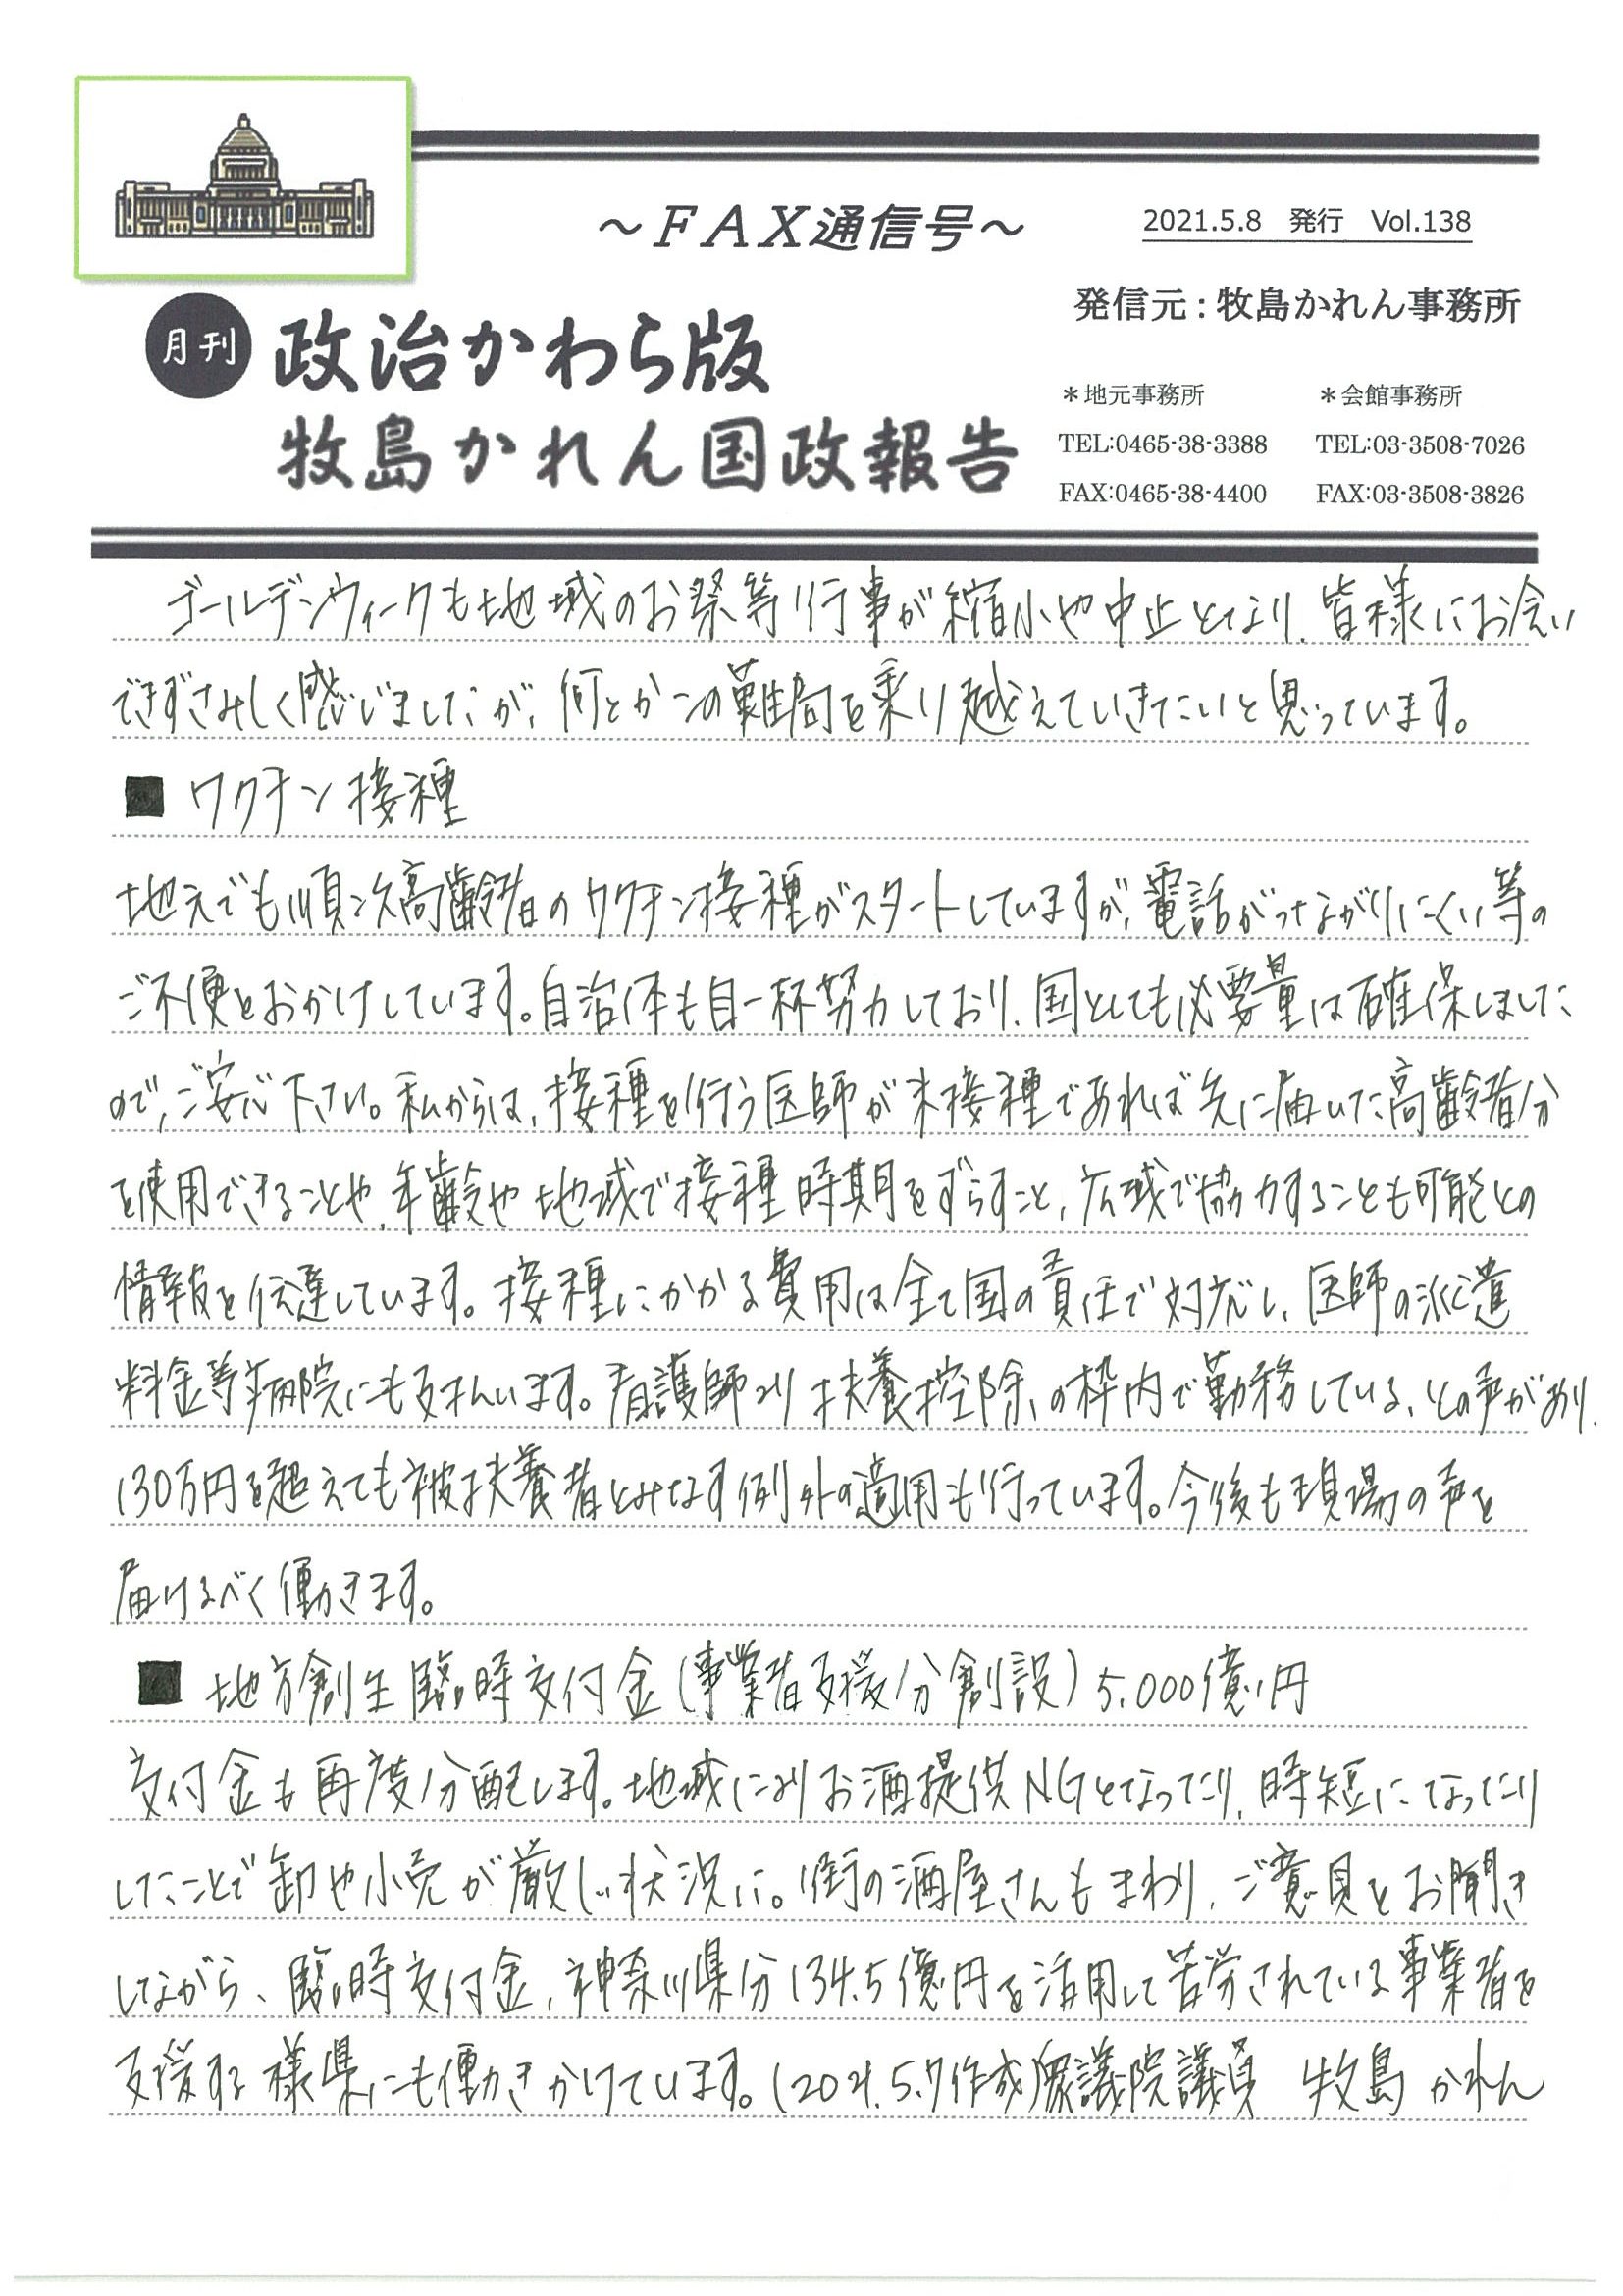 ～ＦＡＸ通信号～
2021.5.8　発行　Vol.138
発信元：牧島かれん事務所
月刊 政治かわら版
牧島かれん国政報告
＊地元事務所
TEL:0465-38-3388
FAX:0465-38-4400
＊会館事務所
TEL:03-3508-7026
FAX:03-3508-3826
ゴールデンウィークも地域のお祭等行事が縮小や中止となり、皆様にお会い
できずさみしく感じましたが、何とかこの難局を乗り越えていきたいと思っています。
■ ワクチン接種
地元でも順次高齢者のワクチン接種がスタートしていますが、電話がつながりにくい等の
ご不便をおかけしています。自治体も目一杯努力しており、国としても必要量は確保しました
ので、ご安心下さい。私からは、接種を行う医師が未接種であれば先に届いた高齢者分
を使用できることや、年齢や地域で接種時期をずらすこと、広域で協力することも可能との
情報を伝達しています。接種にかかる費用は全て国の責任で対応し、医師の派遣
料金等病院にも支払います。看護師より扶養控除の枠内で勤務している、との声があり、
130万円を超えても被扶養者とみなす例外の適用も行っています。今後も現場の声を
届けるべく働きます。
■ 地方創生臨時交付金(事業者支援分創設) 5,000億円
交付金も再度分配します。地域によりお酒提供NGとなったり、時短になったり
したことで卸や小売が厳しい状況に。街の酒屋さんもまわり、ご意見をお聞き
しながら、臨時交付金、神奈川県分134.5億円を活用して苦労されている事業者を
支援する様県にも働きかけています。(2021.5.7作成)衆議院議員　牧島かれん